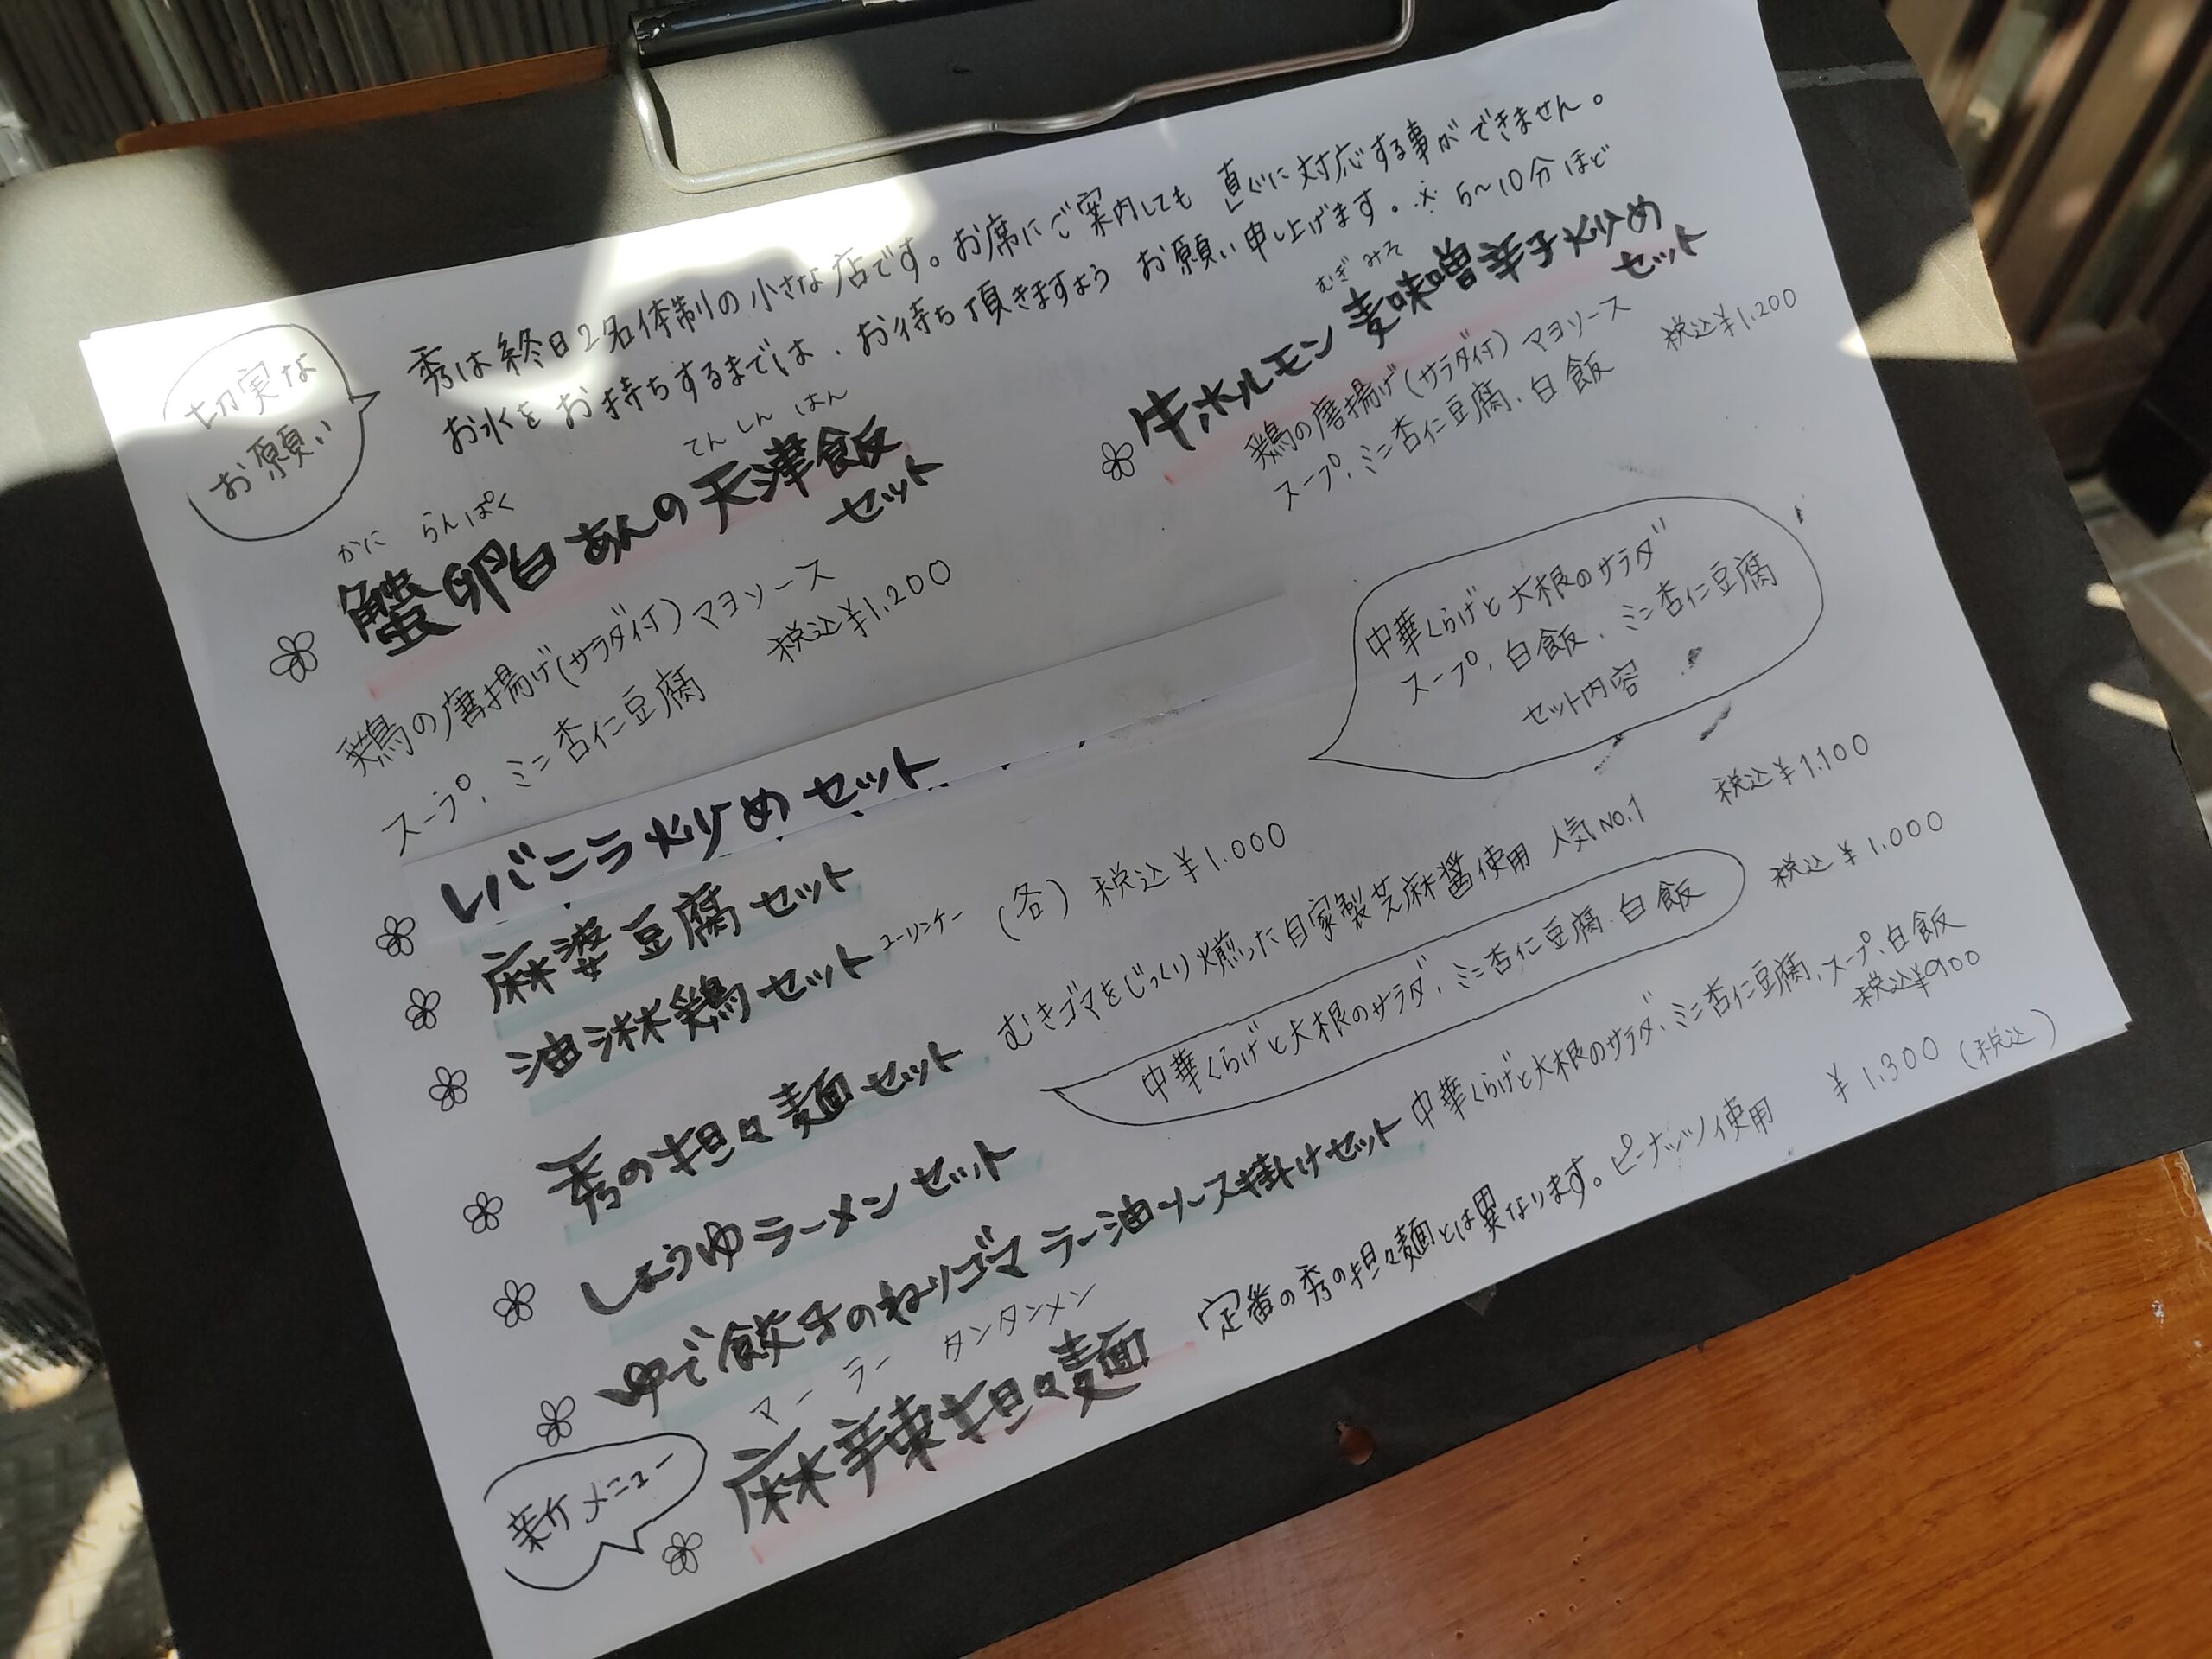 切実な
お願い
秀は終日2名体制の小さな店です。お席にご案内しても 直ぐに対応する事ができません。
お水をお持ちするまでは、お待ち頂きますよう お願い申し上げます。※ 5〜10分ほど
かに らんぱく てんしんはん
蟹卵白あんの天津飯
セット
鶏の唐揚げ(サラダ付) マヨソース
スープ、ミニ杏仁豆腐 税込¥1.200
むぎみそ
牛ホルモン麦味噌辛子炒め
セット
鶏の唐揚げ(サラダ付) マヨソース
スープ、ミニ杏仁豆腐、白飯 税込¥1.200
中華くらげと大根のサラダ
スープ、白飯、ミニ杏仁豆腐
セット内容
レバニラ炒めセット
麻婆豆腐セット
油淋鶏セット ユーリンチー (各) 税込¥1.000
秀の担々麺セット むきゴマをじっくり煎った自家製芝麻醤使用 人気NO.1 税込¥1.100
しょうゆラーメンセット 税込¥1.000
中華くらげと大根のサラダ、ミニ杏仁豆腐、白飯
ゆで餃子のねりゴマラー油ソース掛けセット 中華くらげと大根のサラダ、ミニ杏仁豆腐、スープ、白飯
税込¥900
新メニュー
マーラー タンタンメン
麻辣担々麺 定番の秀の担々麺とは異なります。ピーナッツ使用 ¥1.300(税込)